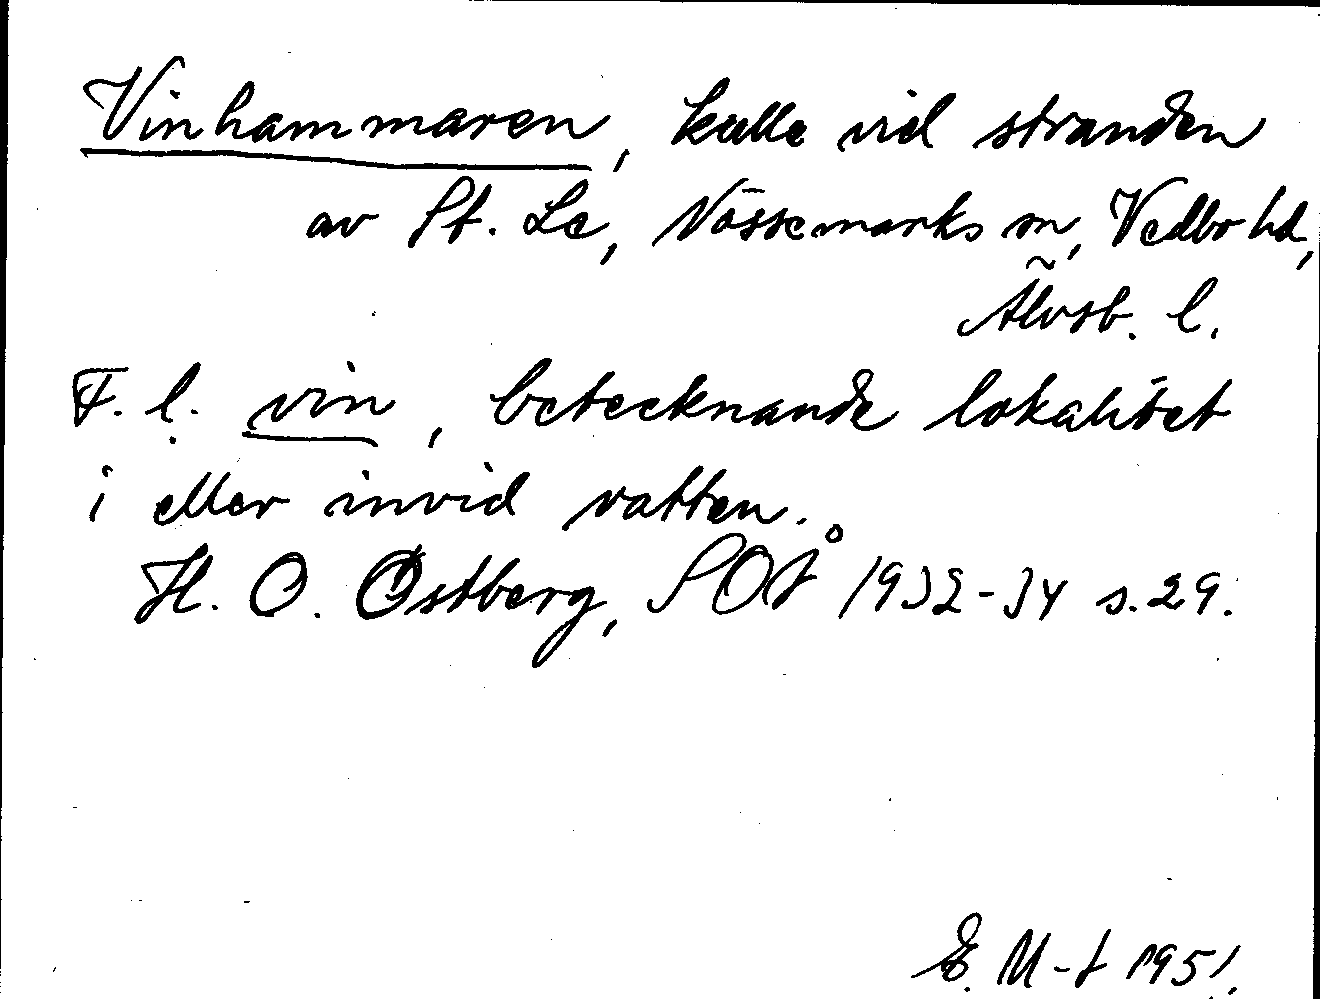 Vinhammaren, kulle vid stranden
av St. Le, Nössemarks sn, Vedbo hd,
Älvsb. l.
F. l. vin, betecknande lokalitet
i eller invid vatten.
H. O. Östberg, SOÅ 1932-34 s. 29.
E. M-t 1951.